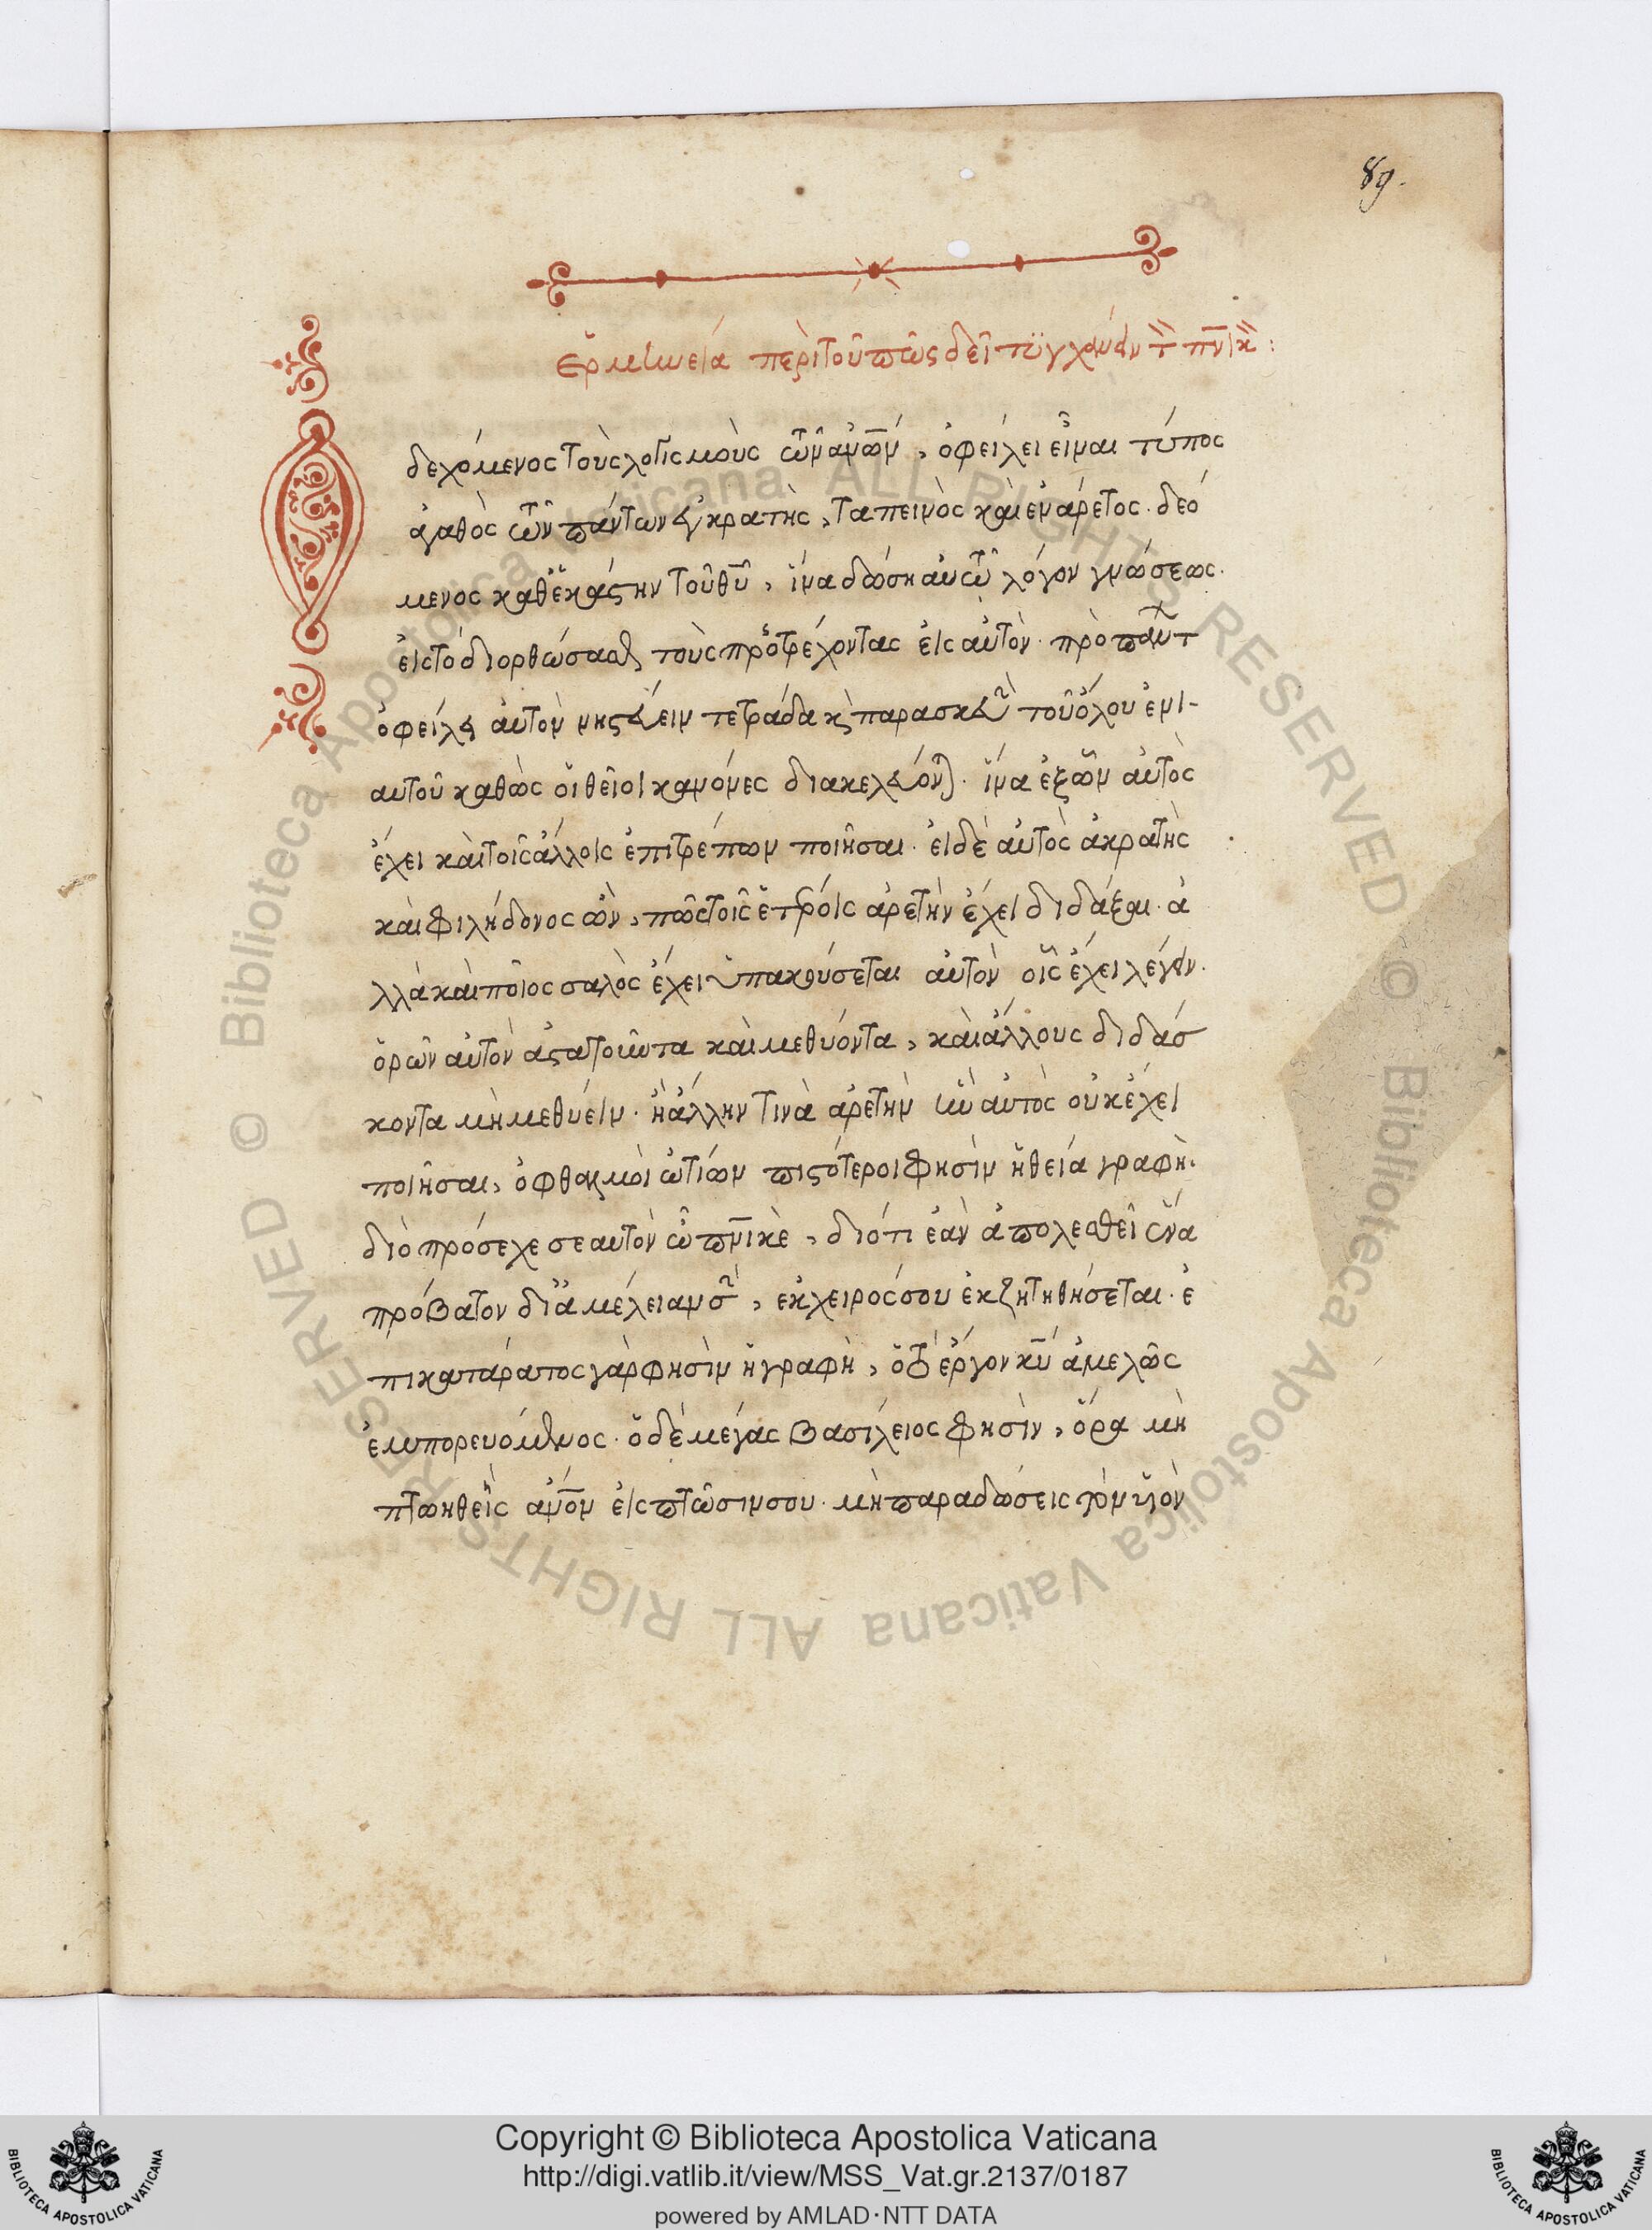 89.
Ἑρμινεία περὶ τοῦ πῶς δεῖ τυγχάνειν τ πνικ :
δεχόμενος τοὺς λογισμοὺς τῶν ἀνων, ὀφείλει εἶναι τύπος
ἀγαθὸς τῶν πάντων ἐγκρατὴς, ταπεινὸς καὶ ἐνάρετος. δεό
μενος καθεκάστην τοῦ θυ, ἵνα δώση αὐτῶ λόγον γνώσεως.
εἰς τὸ διορθώσασθαι τοὺς προστρέχοντας εἰς αὐτὸν. πρὸ πάντ
ὀφείλει αὐτὸν νηστεύειν τετράδα καὶ παρασκευὴ τοῦ ὅλου ἐνι-
αυτοῦ καθὼς οἱ θεῖοι κανόνες διακελεύονται. ἵνα ἐξ ὧν αὐτὸς
ἔχει καὶ τοῖς ἄλλοις ἐπιτρέπων ποιῆσαι. εἰ δὲ αὐτὸς ἀκρατὴς
καὶ φιλήδονος ὢν, πῶς τοῖς ἑτέροις ἀρετὴν ἔχει διδάξαι. ἀ
λλὰ καὶ ποῖος σαλὸς ἔχει ὑπακούσεται αὐτὸν οἷς ἔχει λέγειν.
ὁρῶν αὐτὸν ἀσατοῦντα καὶ μεθύοντα, καὶ ἄλλους διδάσ
κοντα μὴ μεθύειν. ἢ ἄλλην τινὰ ἀρετὴν ἣν αὐτὸς οὐκ ἔχει
ποιῆσαι, ὀφθαλμοὶ ὠτίων πιστότεροι φησὶν ἡ θεία γραφὴ.
διὸ πρόσεχε σεαυτὸν ὦ πνικὲ, διότι ἐὰν ἀπολεσθεῖ ἕνα
πρόβατον δι ἀμέλειαν σου, ἐκ χειρός σου ἐκζητηθήσεται. ἐ
πικατάρατος γὰρ φησὶν ἡ γραφὴ, ὁ τὸ ἔργον κυ ἀμελῶς
ἐμπορευόμενος. ὁ δὲ μέγας βασίλειος φησὶν, ὅρα μὴ
πτωηθεὶς ἀνον εἰς πτῶσιν σου. μὴ παραδώσεις τὸν υἱὸν
© Biblioteca Apostolica Vaticana ALL RIGHTS RESERVED © Biblioteca Apostolica Vaticana ALL RIGHTS RESERVED
Copyright © Biblioteca Apostolica Vaticana
http://digi.vatlib.it/view/MSS_Vat.gr.2137/0187
powered by AMLAD·NTT DATA
BIBLIOTECA APOSTOLICA VATICANA
BIBLIOTECA APOSTOLICA VATICANA